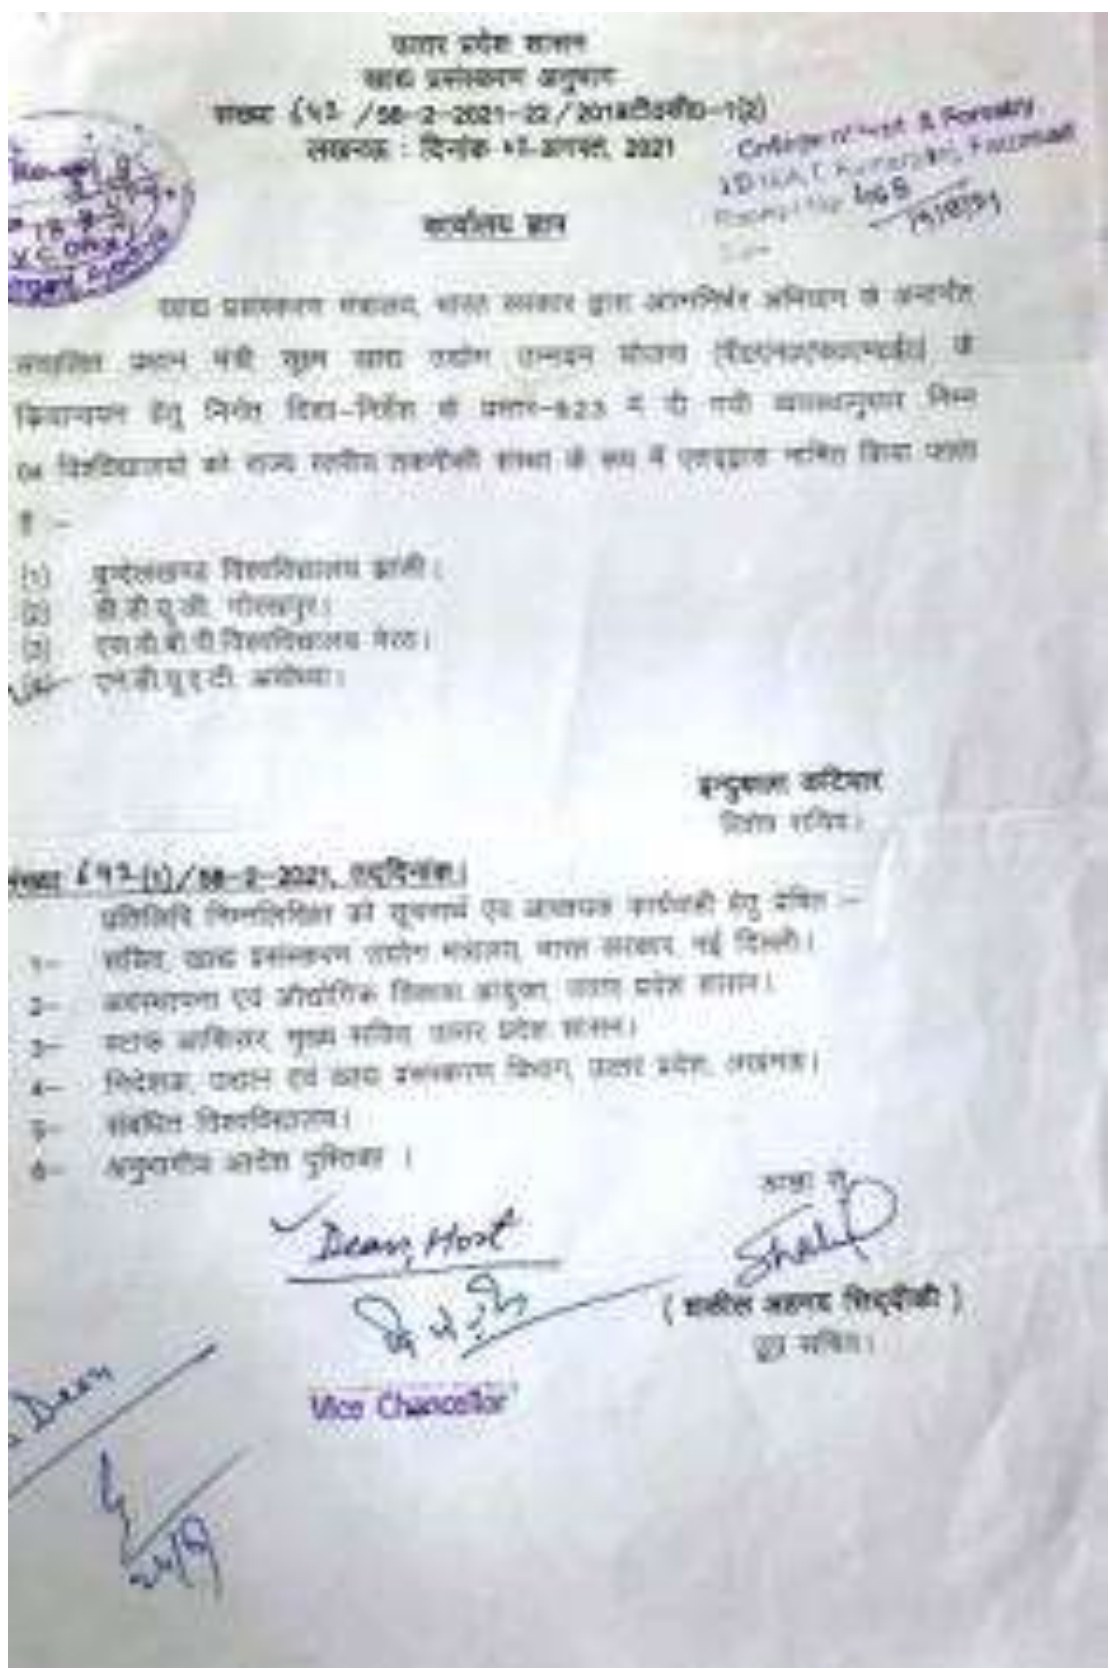 उत्तर प्रदेश शासन
खाद्य प्रसंस्करण अनुभाग
संख्या /58-2-2021-22/2018
लखनऊ : दिनांक अगस्त, 2021
College of & Forestry
468
19/8/21
कार्यालय ज्ञाप
खाद्य प्रसंस्करण मंत्रालय, भारत सरकार द्वारा आत्मनिर्भर अभियान के अन्तर्गत
संचालित प्रधान मंत्री सूक्ष्म खाद्य उद्योग उन्नयन योजना के
क्रियान्वयन हेतु निर्गत दिशा-निर्देश के प्रस्तर-8.2.3 में दी गयी व्यवस्थानुसार निम्न
04 विश्वविद्यालयों को राज्य स्तरीय तकनीकी संस्था के रूप में एतद्द्वारा नामित किया जाता
है :-
(1) बुन्देलखण्ड विश्वविद्यालय झांसी।
(2) डी.डी.यू.जी. गोरखपुर।
(3) एस.वी.बी.पी.विश्वविद्यालय मेरठ।
(4) एन.डी.यू.ए.टी. अयोध्या।
इन्दुबाला कटियार
विशेष सचिव।
संख्या (1)/58-2-2021, तद्दिनांक।
प्रतिलिपि निम्नलिखित को सूचनार्थ एवं आवश्यक कार्यवाही हेतु प्रेषित :-
1- सचिव, खाद्य प्रसंस्करण उद्योग मंत्रालय, भारत सरकार, नई दिल्ली।
2- अवस्थापना एवं औद्योगिक विकास आयुक्त, उत्तर प्रदेश शासन।
3- स्टाफ आफिसर, मुख्य सचिव, उत्तर प्रदेश शासन।
4- निदेशक, उद्यान एवं खाद्य प्रसंस्करण विभाग, उत्तर प्रदेश, लखनऊ।
5- संबंधित विश्वविद्यालय।
6- अनुभागीय आदेश पुस्तिका ।
आज्ञा से,
Dean, Hort
( शकील अहमद सिद्दीकी )
उप सचिव।
Vice Chancellor
Dean